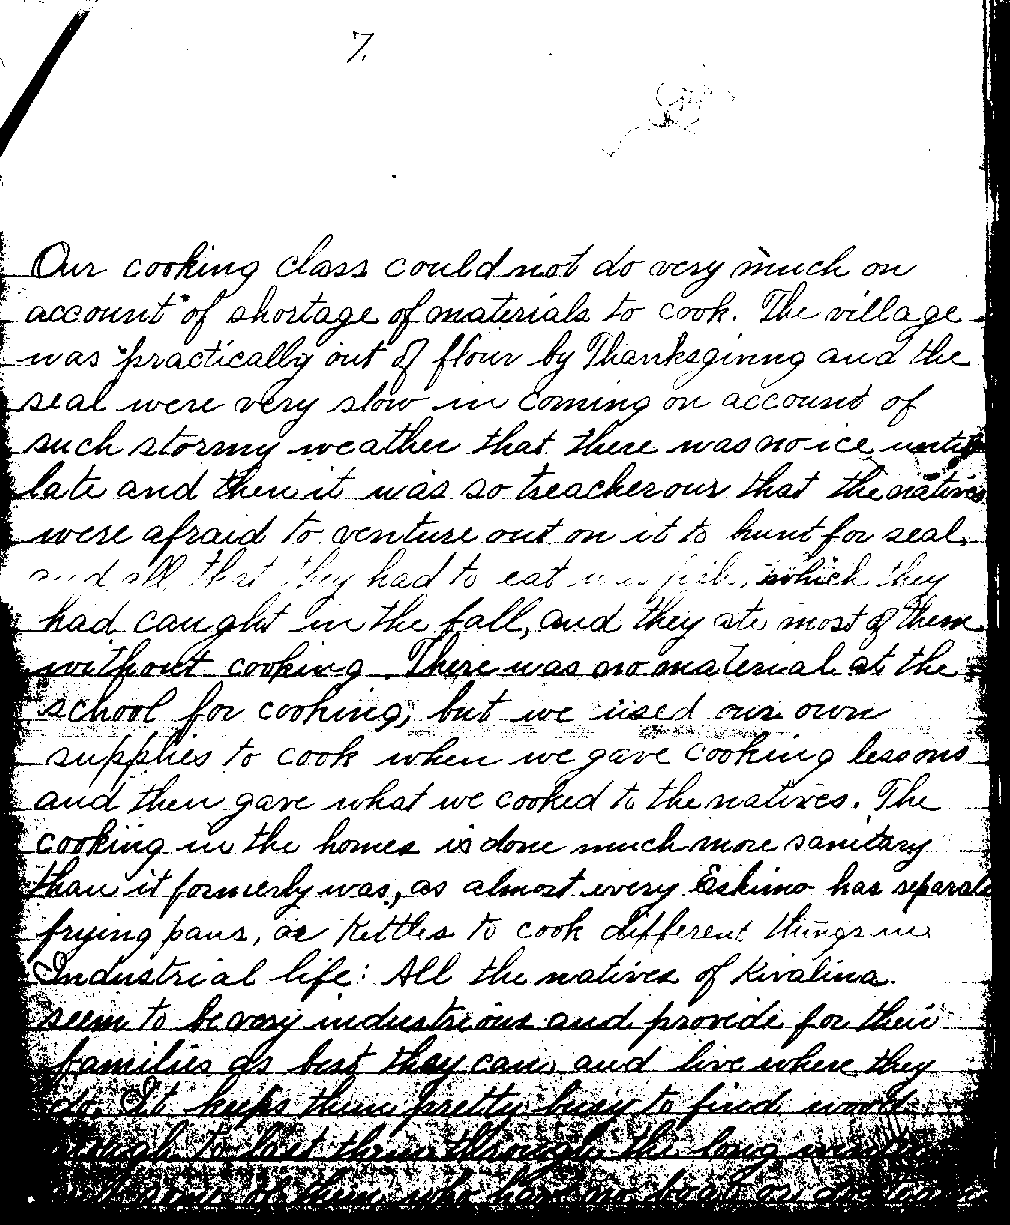 7.
Our cooking class could not do very much on
account of shortage of materials to cook. The village
was practically out of flour by Thanksgiving and the
seal were very slow in coming on account of
such stormy weather that there was no ice until
late and then it was so treacherour that the natives
were afraid to venture out on it to hunt for seal.
and all that they had to eat was fish, which they
had caught in the fall, and they ate most of them
without cooking. There was no material at the
school for cooking, but we used our own
supplies to cook when we gave cooking lessons
and then gave what we cooked to the natives. The
cooking in the homes is done much more sanitary
than it formerly was, as almost every Eskimo has separate
frying pans, or kettles to cook different things in.
Industrial life: All the natives of Kivalina.
seem to be very industrious and provide for their
families as best they can, and live where they
do. It keeps them pretty busy to find wood
enough to last them through the long winter
some of them who have no boat or